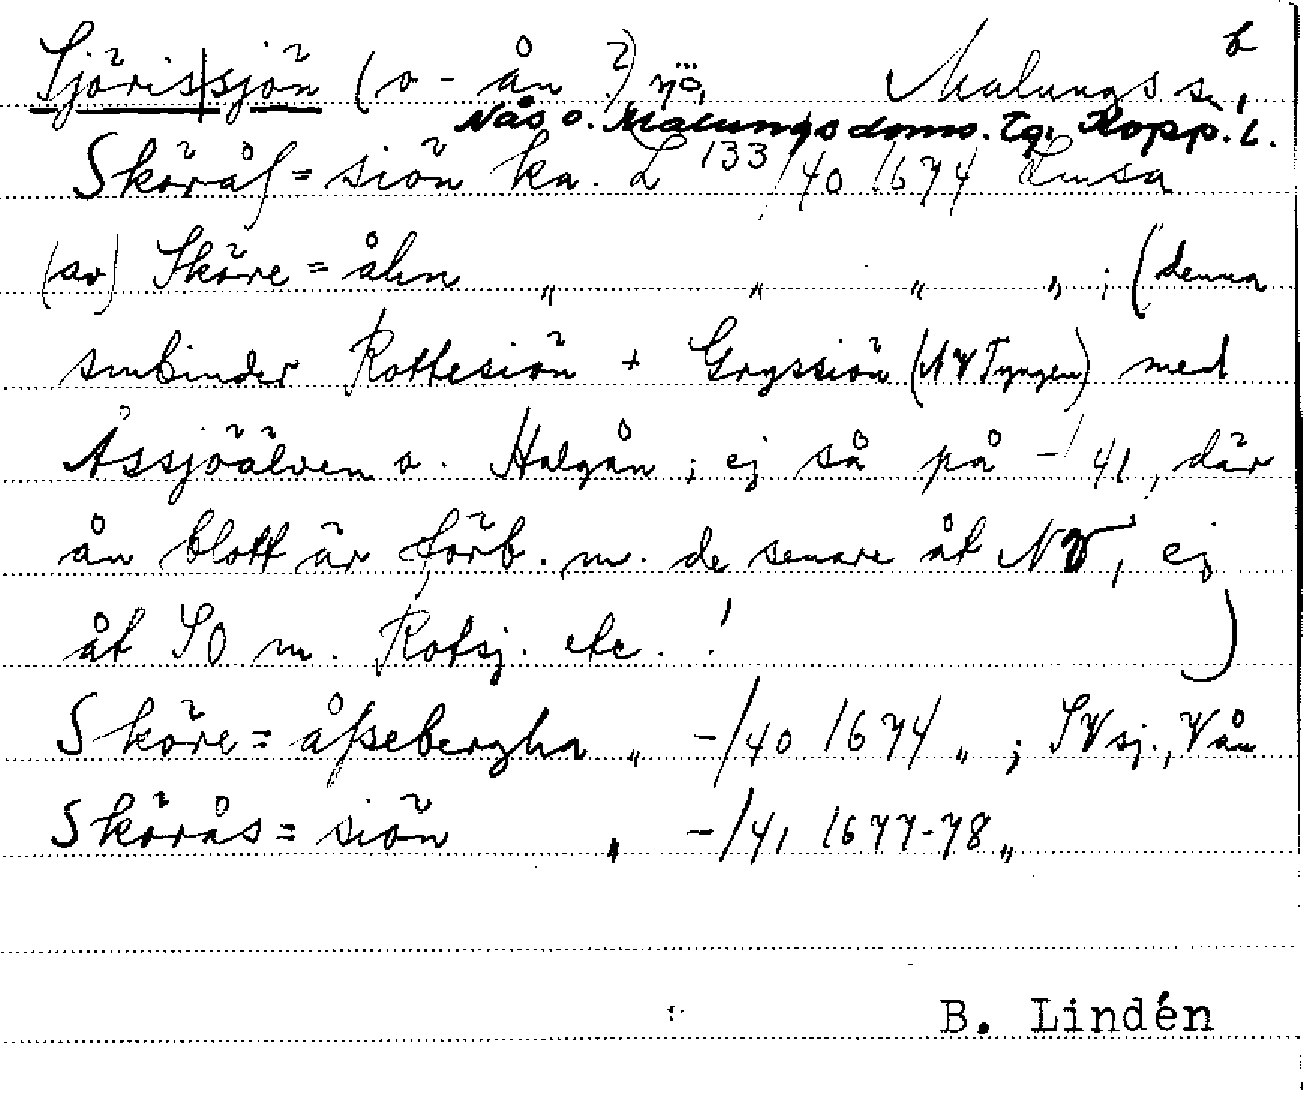 Sjöris|sjön (o - ån ?) Malungs s. b
Nås o. Malungs doms. Tg. Kopp. l.
Sköråſ = siön ka. L 133/40 1674 Limsa
(av) Sköre = åhn " " " " ; (denna
smbinder Rottesiön + Gryssiön (NV Tyngen) med
Åssjöälven o. Halgån ; ej så på -/41, där
ån blott är förb. m. de senare åt NV, ej
åt SO m. Rotsj. etc. ! )
Sköre = åſsebergha " -/40 1674 " ; SV sj., V ån
Skörås = siön " -/41 1677-78 "
B. Lindén